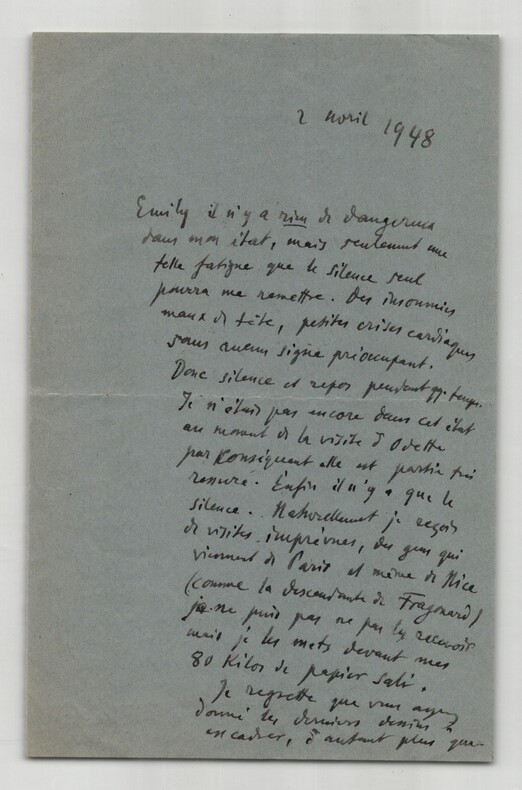 2 avril 1948
Emily il n'y a rien de dangereux
dans mon état, mais seulement une
telle fatigue que le silence seul
pourra me remettre. Des insomnies
maux de tête, petites crises cardiaques
sans aucun signe préoccupant.
Donc silence et repos pendant qq. temps.
Je n'étais pas encore dans cet état
au moment de la visite d'Odette
par conséquent elle est partie très
rassuré. Enfin il n'y a que le
silence. Naturellement je reçois
de visites imprévues, des gens qui
viennent de Paris et même de Nice
(comme la descendante de Fragonard)
je ne puis pas ne pas les recevoir
mais je les mets devant mes
80 Kilos de papier sali.
Je regrette que vous ayez
donné les derniers dessins à
encadrer, d'autant plus que